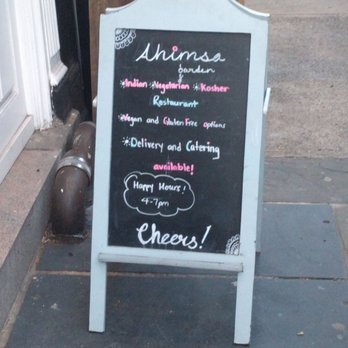 Ahimsa
Garden
*Indian *Vegetarian *Kosher
Restaurant
*Vegan and Gluten Free options
*Delivery and Catering
available!
Happy Hours!
4-7pm
Cheers!